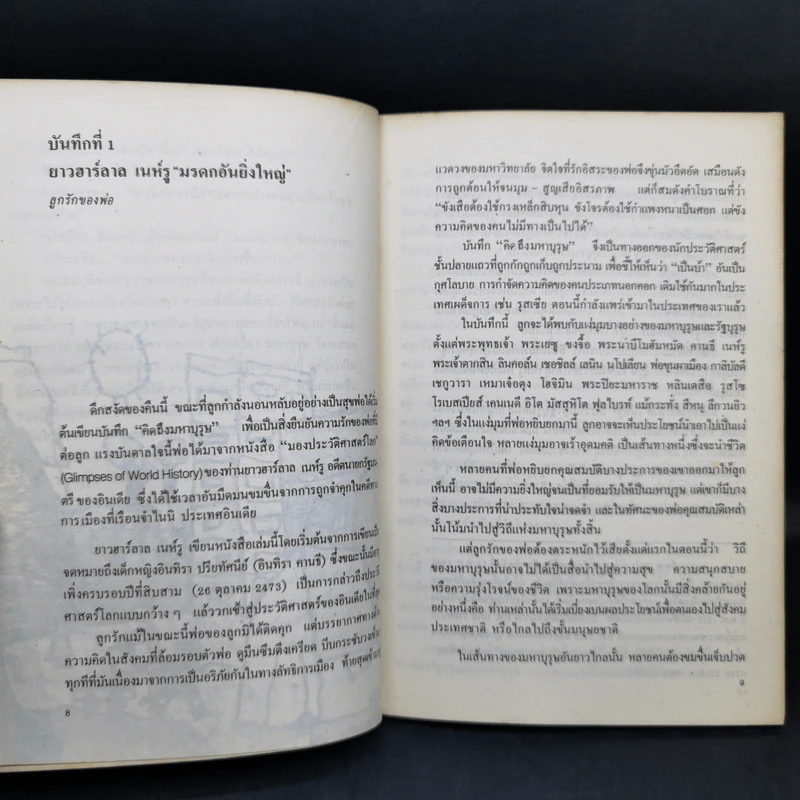 บันทึกที่ 1
ยาวฮาร์ลาล เนห์รู "มรดกอันยิ่งใหญ่"
ลูกรักของพ่อ
ดึกสงัดของคืนนี้ ขณะที่ลูกกำลังนอนหลับอยู่อย่างเป็นสุขพ่อได้เริ่ม
ต้นเขียนบันทึก "คิดถึงมหาบุรุษ" เพื่อเป็นสิ่งยืนยันความรักของพ่อที่มี
ต่อลูก แรงบันดาลใจนี้พ่อได้มาจากหนังสือ "มองประวัติศาสตร์โลก"
(Glimpses of World History) ของท่านยาวฮาร์ลาล เนห์รู อดีตนายกรัฐมน-
ตรี ของอินเดีย ซึ่งได้ใช้เวลาอันมืดมนขมขื่นจากการถูกจำคุกในคดีทาง
การเมืองที่เรือนจำไนนิ ประเทศอินเดีย
ยาวฮาร์ลาล เนห์รู เขียนหนังสือเล่มนี้โดยเริ่มต้นจากการเขียนเป็น
จดหมายถึงเด็กหญิงอินทิรา ปรียทัศนีย์ (อินทิรา คานธี) ซึ่งขณะนั้นมีอายุ
เพิ่งครบรอบปีที่สิบสาม (26 ตุลาคม 2473) เป็นการกล่าวถึงประวัติ
ศาสตร์โลกแบบกว้าง ๆ แล้ววกเข้าสู่ประวัติศาสตร์ของอินเดียในที่สุด
ลูกรักแม้ในขณะนี้พ่อของลูกมิได้ติดคุก แต่บรรยากาศทาง
ความคิดในสังคมที่ล้อมรอบตัวพ่อ ดูมึนซึมตึงเครียด บีบกระชับวงเข้ามา
ทุกทีที่มันเนื่องมาจากการเป็นอริภัยกันในทางลัทธิการเมือง ท้ายสุดเข้ามา
8
แวดวงของมหาวิทยาลัย จิตใจที่รักอิสระของพ่อจึงขุ่นมัวอึดอัด เสมือนดัง
การถูกต้อนให้จนมุม - สูญเสียอิสรภาพ แต่ก็สมดังคำโบราณที่ว่า
"ขังเสือต้องใช้กรงเหล็กสิบหุน ขังโจรต้องใช้กำแพงหนาเป็นศอก แต่ขัง
ความคิดของคนไม่มีทางเป็นไปได้"
บันทึก "คิดถึงมหาบุรุษ" จึงเป็นทางออกของนักประวัติศาสตร์
ชั้นปลายแถวที่ถูกกักถูกเก็บถูกประนาม เพื่อชี้ให้เห็นว่า "เป็นบ้า" อันเป็น
กุศโลบาย การกำจัดความคิดของคนประเภทนอกคอก เดิมใช้กันมากในประ
เทศเผด็จการ เช่น รุสเซีย ตอนนี้กำลังแพร่เข้ามาในประเทศของเราแล้ว
ในบันทึกนี้ ลูกจะได้พบกับแง่มุมบางอย่างของมหาบุรุษและรัฐบุรุษ
ตั้งแต่พระพุทธเจ้า พระเยซู ขงจื้อ พระนาบีโมฮัมหมัด คานธี เนห์รู
พระเจ้าตากสิน ลินคอล์น เชอชิลล์ เลนิน นโปเลียน พ่อขุนผาเมือง กาลิบัลดี
เชกูวารา เหมาเจ๋อตุง โฮจิมิน พระปิยะมหาราช หลินเตสือ รุสโซ
โรเบสเปียส์ เคนเนดี อิโต มัสสุหิโต ฟุลไบรท์ แม้กระทั่ง สีหนุ ลีกวนยิว
ฯลฯ ซึ่งในแง่มุมที่พ่อหยิบยกมานี้ ลูกอาจจะเห็นประโยชน์นำเอาไปเป็นแง่
คิดข้อเตือนใจ หลายแง่มุมอาจเร้าอุดมคติ เป็นเส้นทางหนึ่งซึ่งจะนำชีวิต
หลายคนที่พ่อหยิบยกคุณสมบัติบางประการของเขาออกมาให้ลูก
เห็นนี้ อาจไม่มีความยิ่งใหญ่จนเป็นที่ยอมรับให้เป็นมหาบุรุษ แต่เขาก็มีบาง
สิ่งบางประการที่น่าประทับใจน่าจดจำ และในทัศนะของพ่อคุณสมบัติเหล่า
นั้นโน้มนำไปสู่วิถีแห่งมหาบุรุษทั้งสิ้น
แต่ลูกรักของพ่อต้องตระหนักไว้เสียตั้งแต่แรกในตอนนี้ว่า วิถี
ของมหาบุรุษนั้นอาจไม่ได้เป็นสื่อนำไปสู่ความสุข ความสนุกสบาย
หรือความรุ่งโรจน์ของชีวิต เพราะมหาบุรุษของโลกนั้นมีสิ่งคล้ายกันอยู่
อย่างหนึ่งคือ ท่านเหล่านั้นได้เริ่มเบี่ยงเบนผลประโยชน์เพื่อตนเองไปสู่สังคม
ประเทศชาติ หรือไกลไปถึงขั้นมนุษยชาติ
ในเส้นทางของมหาบุรุษอันยาวไกลนั้น หลายคนต้องขมขื่นเจ็บปวด
9